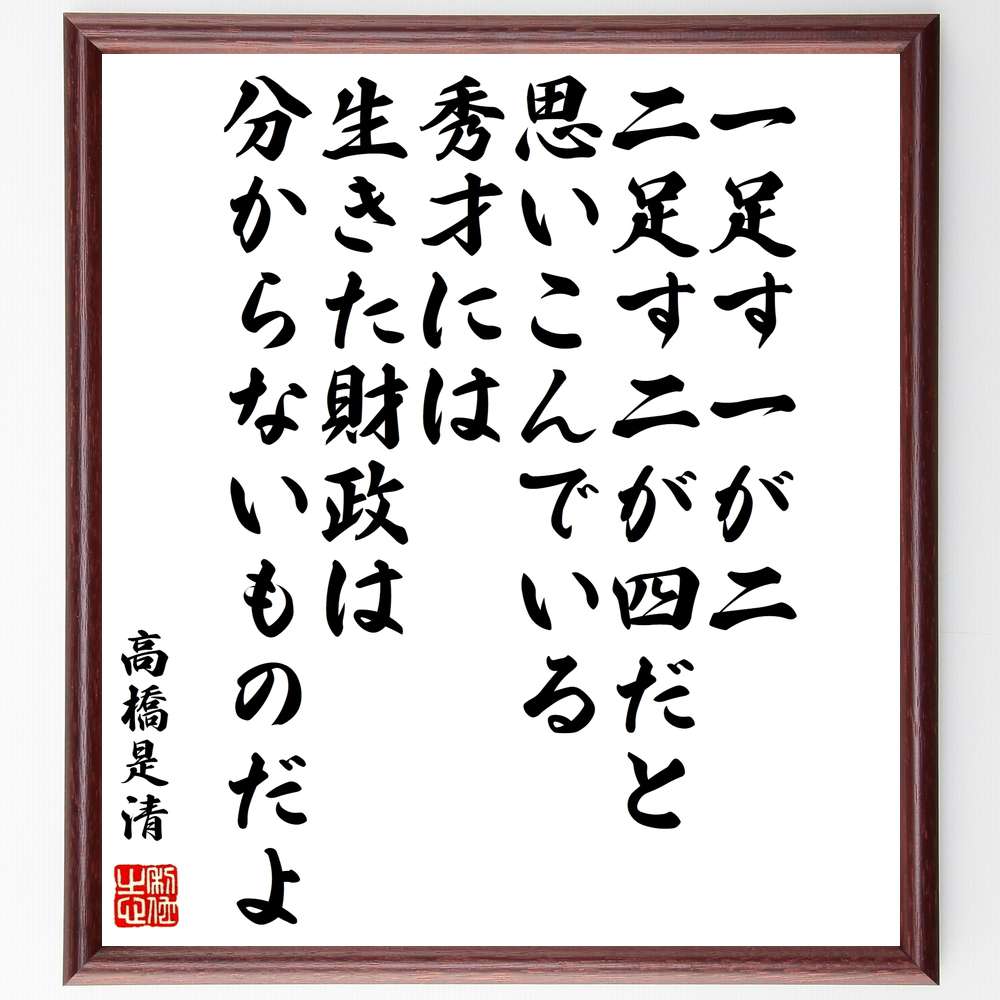 一足す一が二
二足す二が四だと
思いこんでいる
秀才には
生きた財政は
分からないものだよ
高橋是清